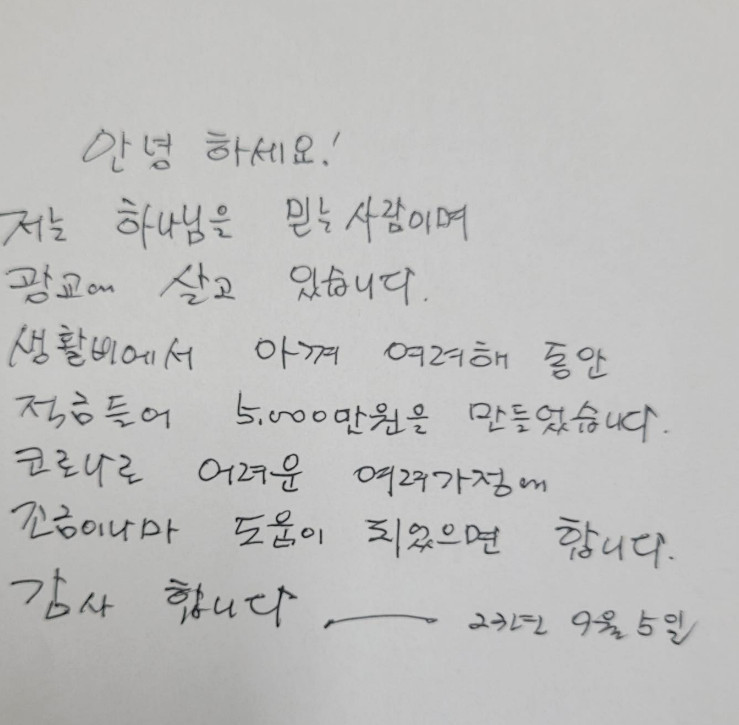 안녕 하세요!
저는 하나님을 믿는 사람이며
광교에 살고 있습니다.
생활비에서 아껴 여러해 동안
적금들어 5,000만원을 만들었습니다.
코로나로 어려운 여러가정에
조금이나마 도움이 되었으면 합니다.
감사 합니다 23년 9월 5일